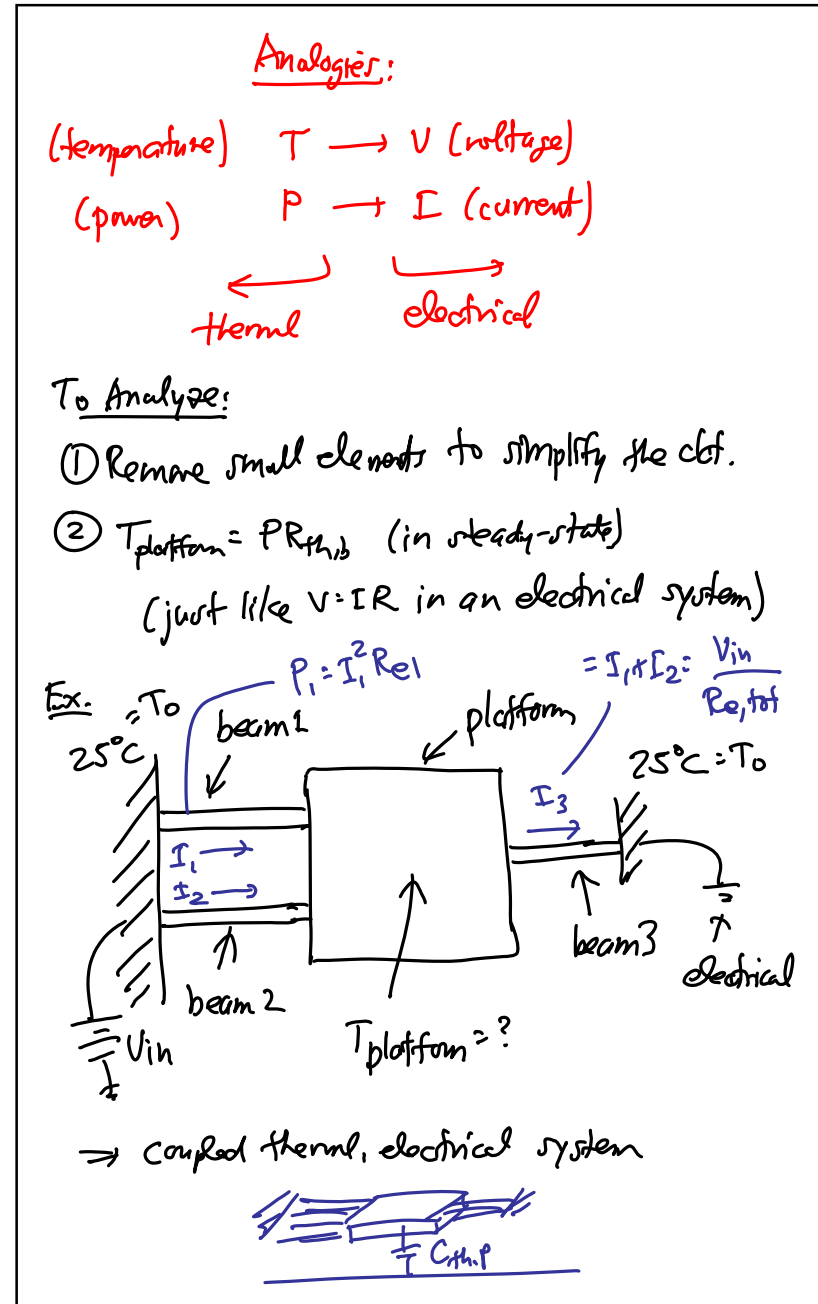 Analogies:
(temperature) T → V (voltage)
(power) P → I (current)
thermal electrical
To Analyze:
① Remove small elements to simplify the ckt.
② Tplatform = PRth,b (in steady-state)
(just like V=IR in an electrical system)
P₁ = I₁²Re1
= I₁+I₂ = Vin / Re,tot
Ex.
25°C = To
beam1
platform
25°C = To
I₁ →
I₂ →
I₃ →
beam2
beam3
electrical
Vin
Tplatform = ?
⇒ coupled thermal, electrical system
Cth,p